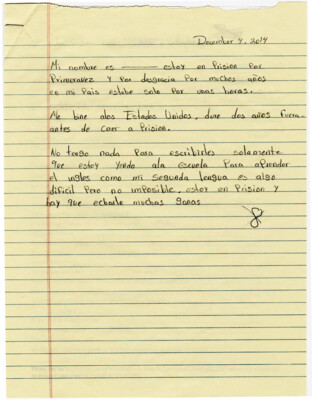 December 4, 2014
Mi nombre es ———— estoy en Prision Por
Primeravez y Por desgracia Por muchos años
en mi Pais estube solo Por unas horas.
Me bine alos Estados Unidos, dure dos años fuera
antes de caer a Prision.
No tengo nada Para escribirles solamente
que estoy yendo ala escuela Para aprender
el ingles como mi segueda lengua es algo
dificil Pero no imposible, estoy en Prision y
hay que echarle muchas ganas